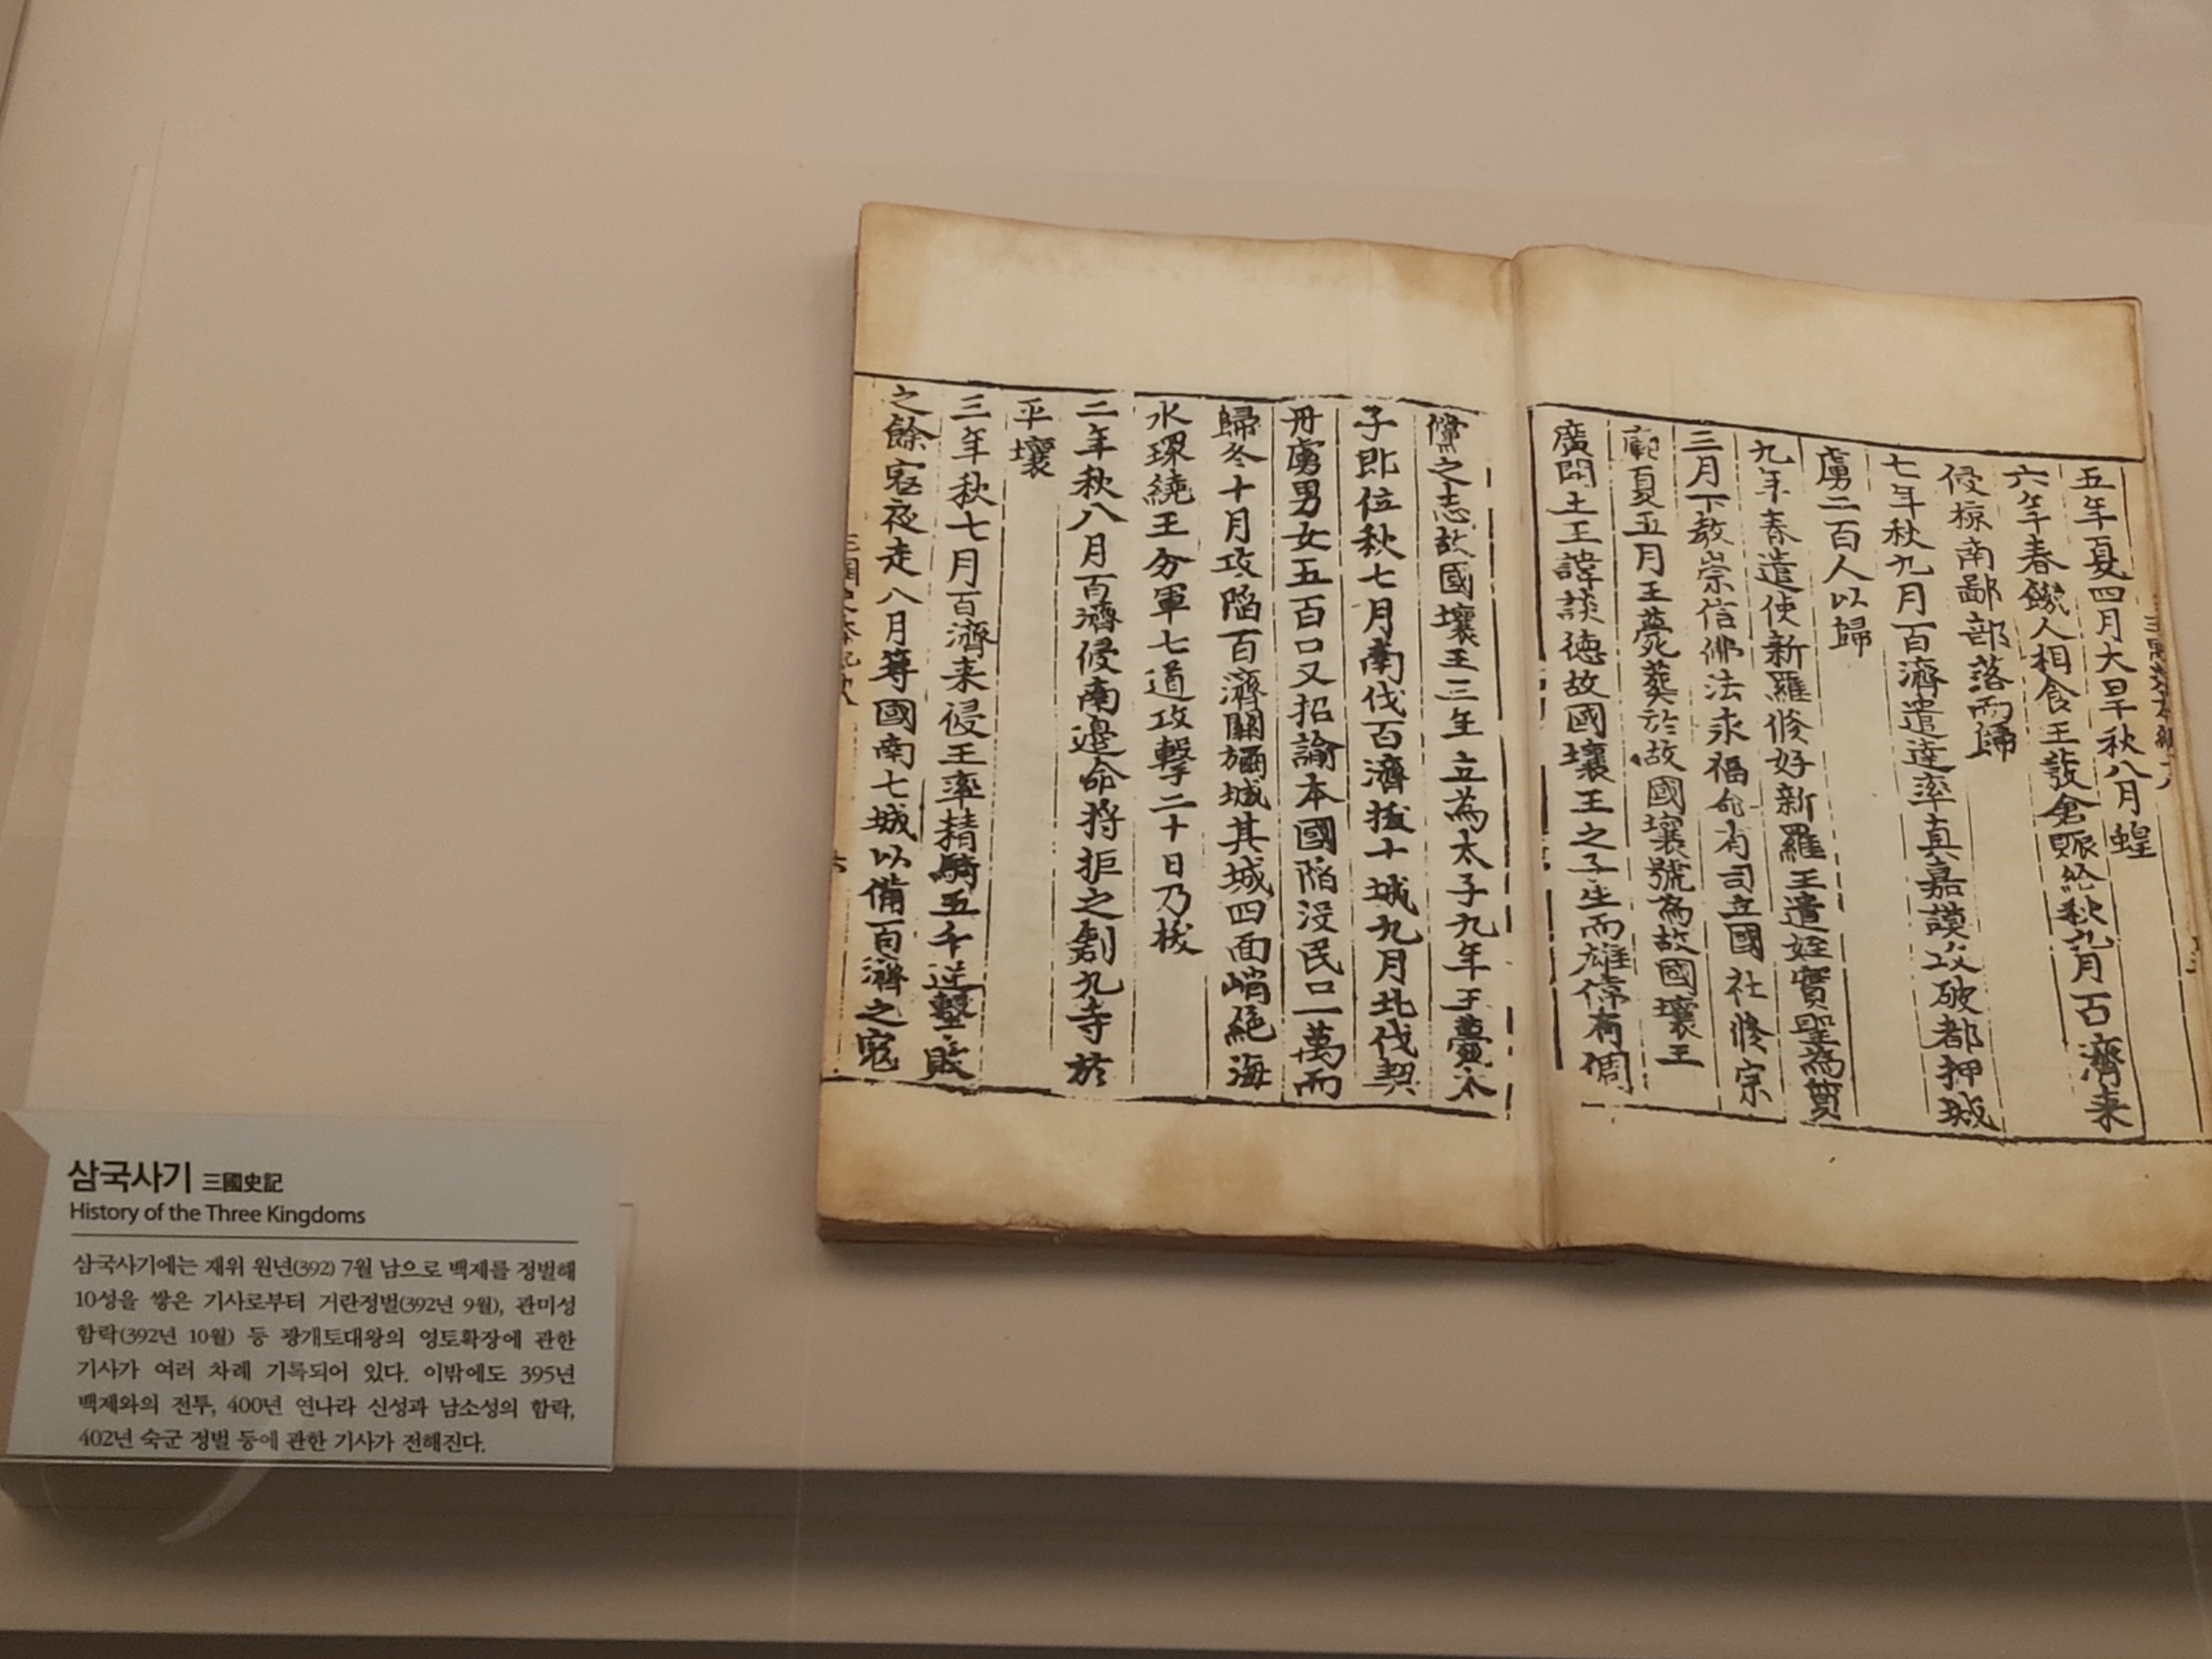 五年夏四月大旱秋八月蝗
六年春饑人相食王發倉賑給秋九月百濟来
侵掠南鄙部落而歸
七年秋九月百濟遣達率真嘉謨攻破都押城
虜二百人以歸
九年春遣使新羅修好新羅王遣姪實聖為質
三月下教崇信佛法求福命有司立國社修宗
廟夏五月王薨葬於故國壤號為故國壤王
廣開土王諱談德故國壤王之子生而雄偉有倜
儻之志故國壤王三年立為太子九年王薨太
子即位秋七月南伐百濟拔十城九月北伐契
丹虜男女五百口又招諭本國陷沒民口一萬而
歸冬十月攻陷百濟關彌城其城四面峭絶海
水環繞王分軍七道攻擊二十日乃拔
二年秋八月百濟侵南邊命将拒之創九寺於
平壤
三年秋七月百濟来侵王率精騎五千逆擊敗
之餘寇夜走八月築國南七城以備百濟之寇
삼국사기 三國史記
History of the Three Kingdoms
삼국사기에는 재위 원년(392) 7월 남으로 백제를 정벌해
10성을 쌓은 기사로부터 거란정벌(392년 9월), 관미성
함락(392년 10월) 등 광개토대왕의 영토확장에 관한
기사가 여러 차례 기록되어 있다. 이밖에도 395년
백제와의 전투, 400년 연나라 신성과 남소성의 함락,
402년 숙군 정벌 등에 관한 기사가 전해진다.